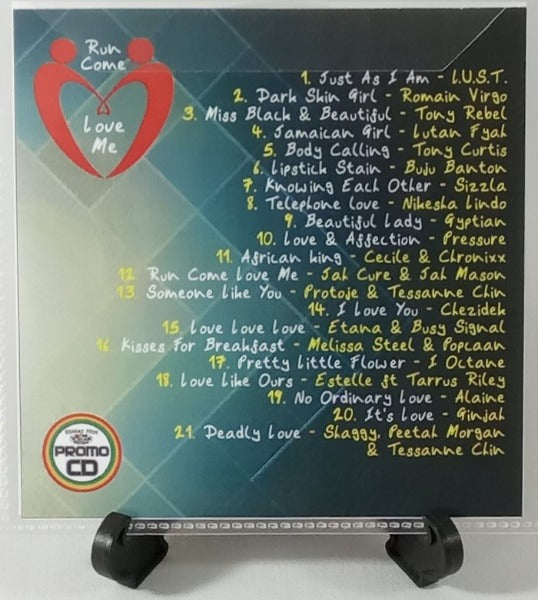 Run
Come
Love
Me
1. Just As I Am - I.U.S.T.
2. Dark Skin Girl - Romain Virgo
3. Miss Black & Beautiful - Tony Rebel
4. Jamaican Girl - Lutan Fyah
5. Body Calling - Tony Curtis
6. Lipstick Stain - Buju Banton
7. Knowing Each Other - Sizzla
8. Telephone Love - Nikesha Lindo
9. Beautiful Lady - Gyptian
10. Love & Affection - Pressure
11. African King - Cecile & Chronixx
12. Run Come Love Me - Jah Cure & Jah Mason
13. Someone Like You - Protoje & Tessanne Chin
14. I Love You - Chezidek
15. Love Love Love - Etana & Busy Signal
16. Kisses For Breakfast - Melissa Steel & Popcaan
17. Pretty Little Flower - I Octane
18. Love Like Ours - Estelle ft Tarrus Riley
19. No Ordinary Love - Alaine
20. It's Love - Ginjah
21. Deadly Love - Shaggy, Peetah Morgan
& Tessanne Chin
PROMO
CD